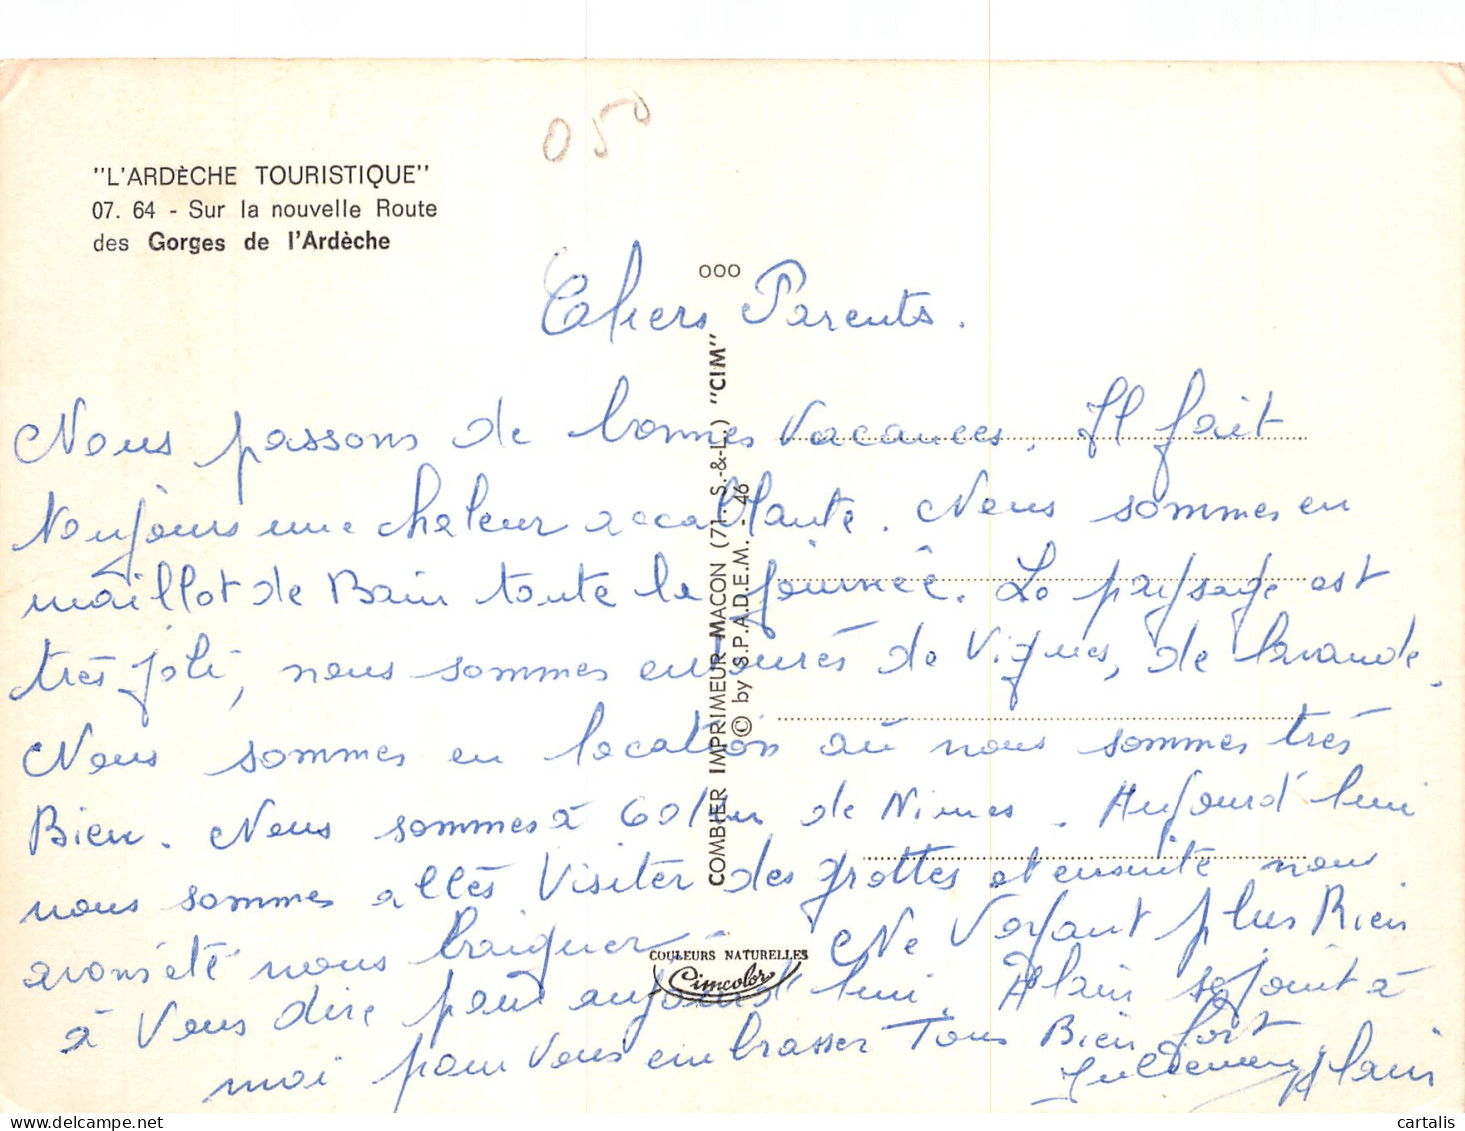 050
"L'ARDÈCHE TOURISTIQUE"
07. 64 - Sur la nouvelle Route
des Gorges de l'Ardèche
ooo
Chers Parents.
Nous passons de bonnes Vacances. Il fait
Toujours une chaleur accablante. Nous sommes en
maillot de Bain toute la journée. Le paysage est
très joli, nous sommes entourés de Vignes, de lavande.
Nous sommes en location où nous sommes très
Bien. Nous sommes à 60 km de Nimes. Aujourd'hui
nous sommes allés Visiter des grottes et ensuite nous
avons été nous baigner. Ne Voyant plus Rien
à Vous dire pour aujourd'hui. Alain se joint à
moi pour Vous embrasser Tous Bien fort.
Alain
COMBIER IMPRIMEUR MACON (71. S.-&-L.) "CIM"
© by S.P.A.D.E.M. - 46
COULEURS NATURELLES
Cimcolor
cartalis